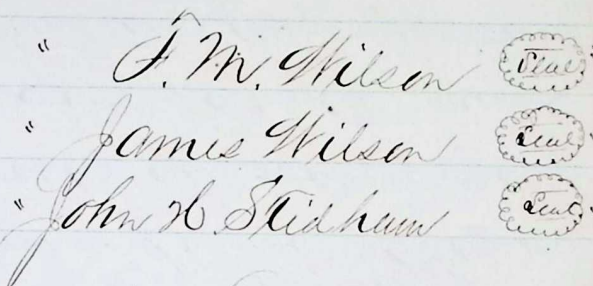 " F. M. Wilson Seal
" James Wilson Seal
" John H. Stidham Seal